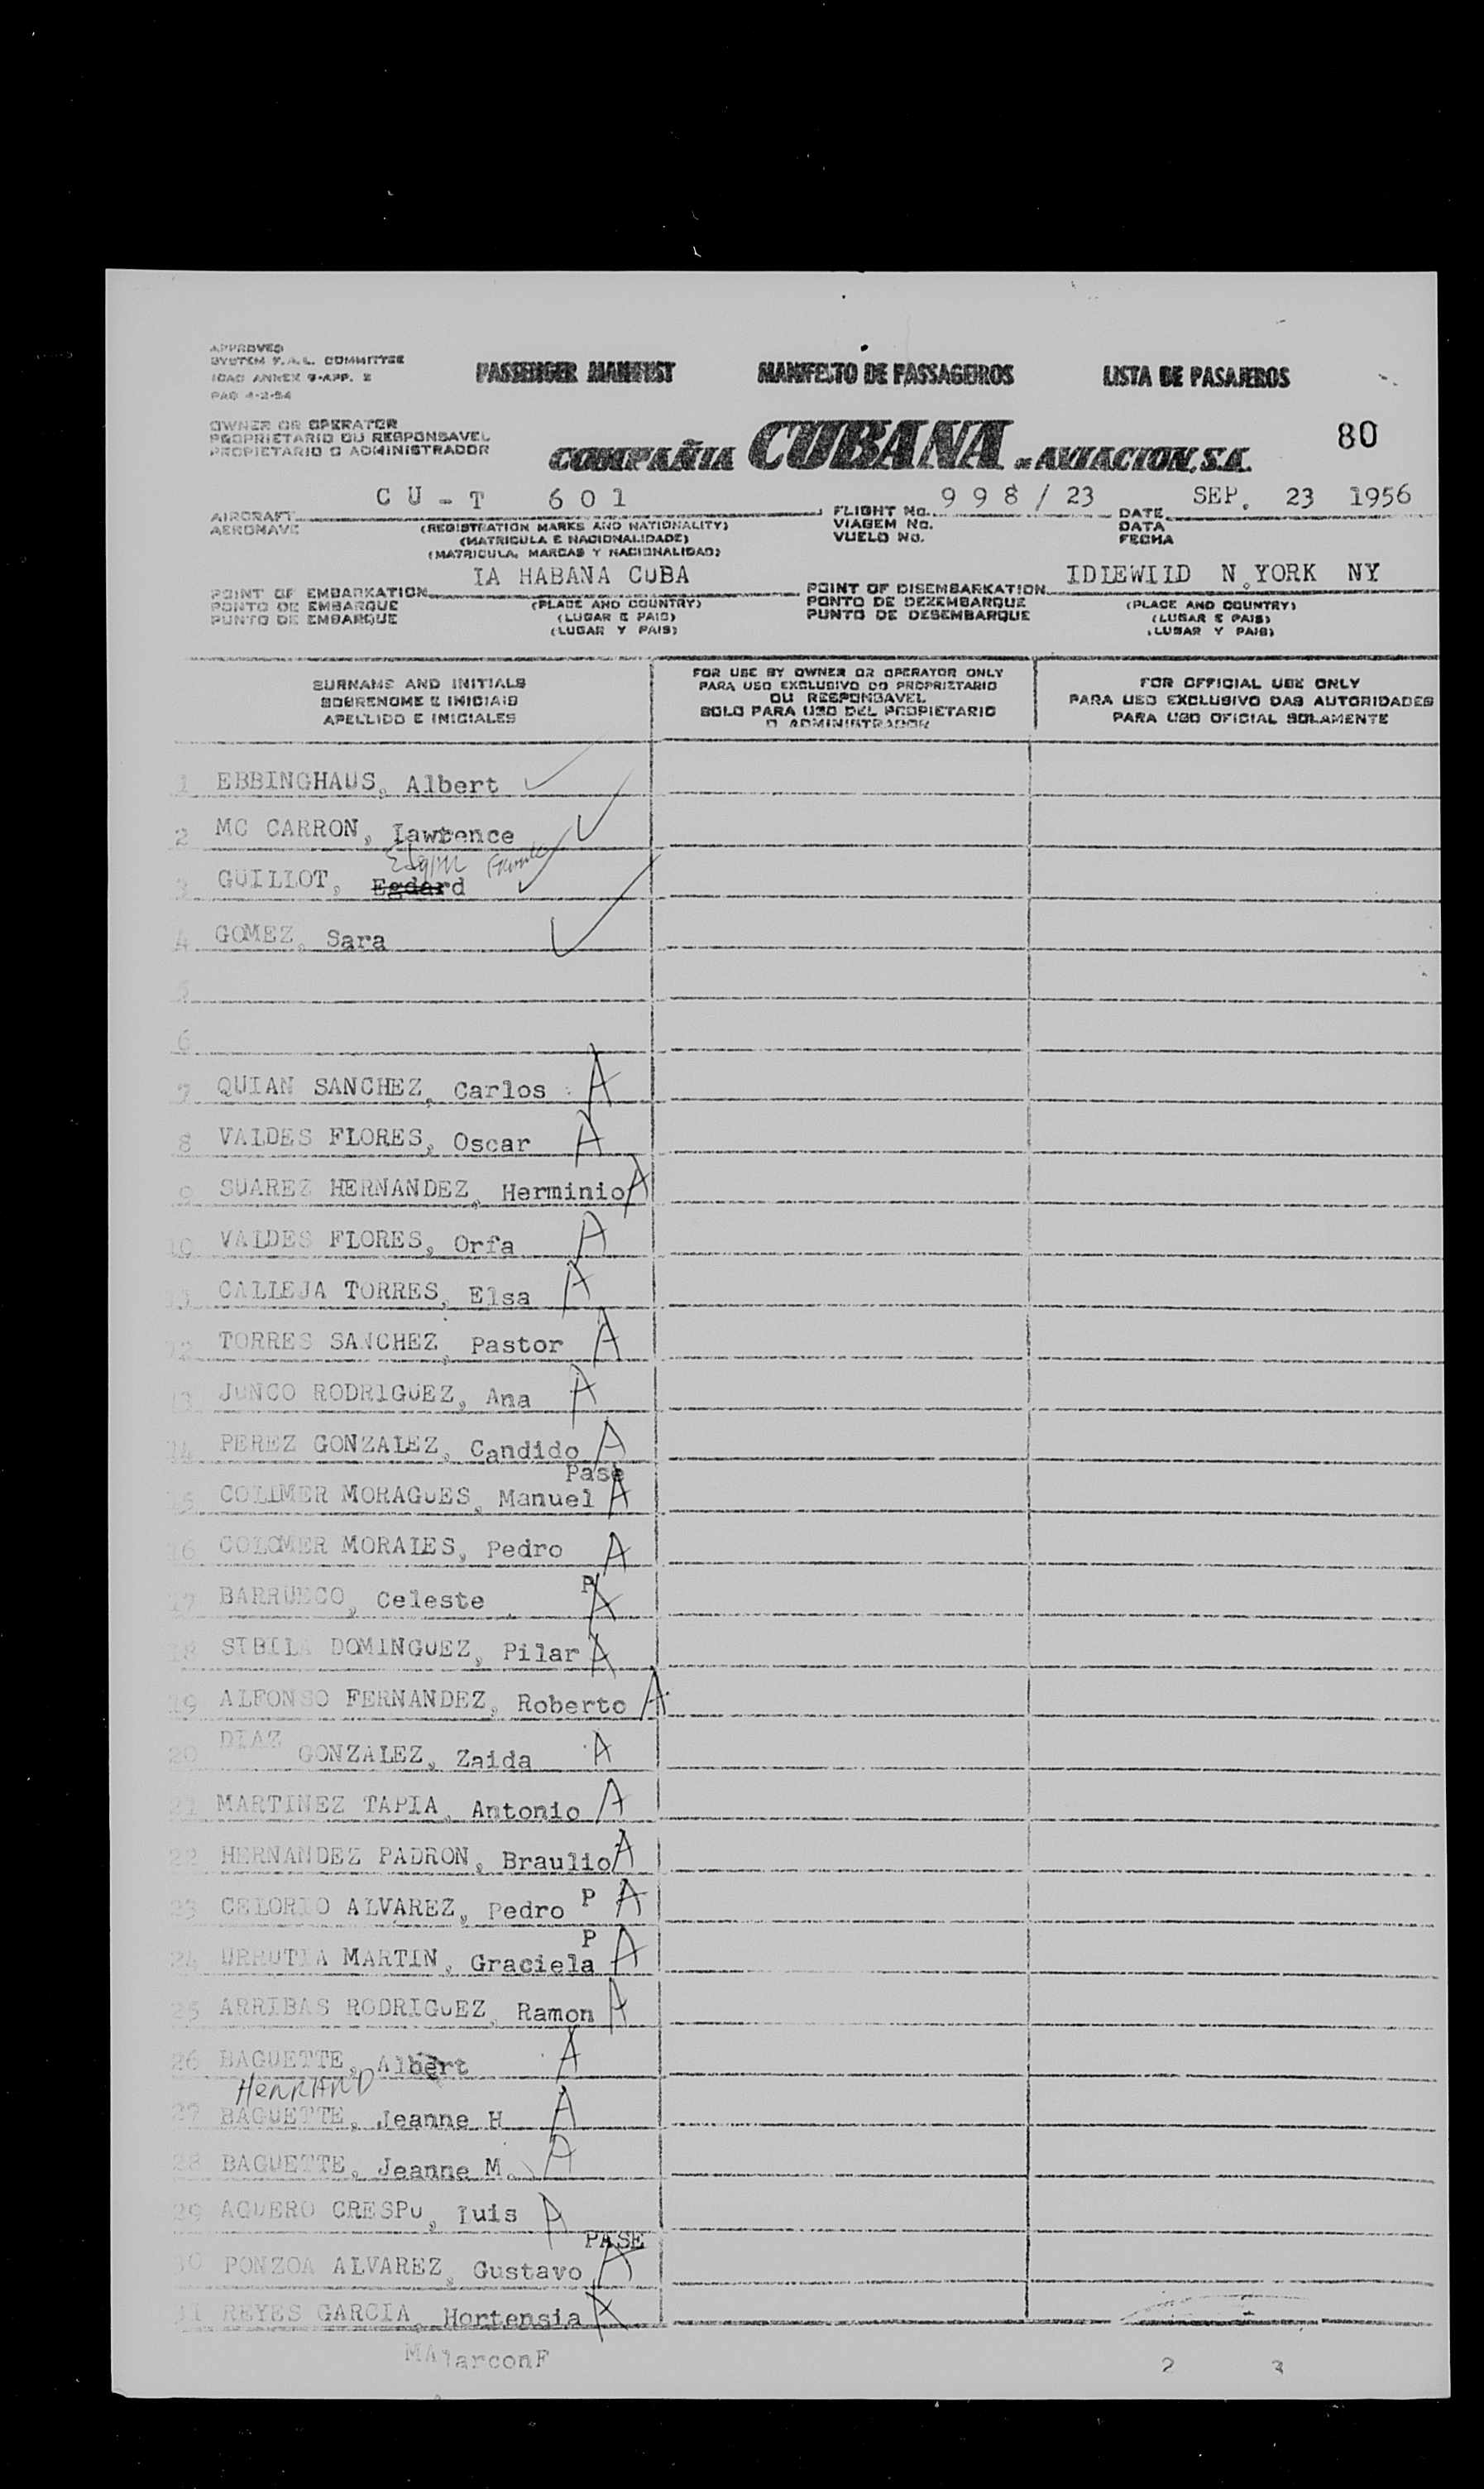 APPROVED
SYSTEM F.A.L. COMMITTEE
ICAO ANNEX 9-APP. 2
PAG 4-2-54
PASSENGER MANIFEST MANIFESTO DE PASSAGEIROS LISTA DE PASAJEROS
OWNER OR OPERATOR
PROPRIETARIO OU RESPONSAVEL
PROPIETARIO O ADMINISTRADOR
COMPAÑIA CUBANA DE AVIACION, S.A.
80
AIRCRAFT CU-T 601
AERONAVE
(REGISTRATION MARKS AND NATIONALITY)
(MATRICULA E NACIONALIDADE)
(MATRICULA, MARCAS Y NACIONALIDAD)
FLIGHT No. 998/23
VIAGEM No.
VUELO No.
DATE SEP. 23 1956
DATA
FECHA
POINT OF EMBARKATION LA HABANA CUBA
PONTO DE EMBARQUE
PUNTO DE EMBARQUE
(PLACE AND COUNTRY)
(LUGAR E PAIS)
(LUGAR Y PAIS)
POINT OF DISEMBARKATION IDLEWILD N.YORK NY
PONTO DE DEZEMBARQUE
PUNTO DE DESEMBARQUE
(PLACE AND COUNTRY)
(LUGAR E PAIS)
(LUGAR Y PAIS)
SURNAME AND INITIALS
SOBRENOME E INICIAIS
APELLIDO E INICIALES
FOR USE BY OWNER OR OPERATOR ONLY
PARA USO EXCLUSIVO DO PROPRIETARIO
OU RESPONSAVEL
SOLO PARA USO DEL PROPIETARIO
O ADMINISTRADOR
FOR OFFICIAL USE ONLY
PARA USO EXCLUSIVO DAS AUTORIDADES
PARA USO OFICIAL SOLAMENTE
1 EBBINGHAUS, Albert
2 MC CARRON, Lawrence
3 GUILLOT, Egdard
4 GOMEZ, Sara
5
6
7 QUIAN SANCHEZ, Carlos A
8 VALDES FLORES, Oscar A
9 SUAREZ HERNANDEZ, Herminio A
10 VALDES FLORES, Orfa A
11 CALLEJA TORRES, Elsa A
12 TORRES SANCHEZ, Pastor A
13 JUNCO RODRIGUEZ, Ana A
14 PEREZ GONZALEZ, Candido A
Pase
15 COLIMER MORAGUES, Manuel A
16 COLOMER MORALES, Pedro A
17 BARRUECO, Celeste P A
18 SIBILA DOMINGUEZ, Pilar A
19 ALFONSO FERNANDEZ, Roberto A
20 DIAZ GONZALEZ, Zaida A
21 MARTINEZ TAPIA, Antonio A
22 HERNANDEZ PADRON, Braulio A
23 CELORIO ALVAREZ, Pedro P A
24 URRUTIA MARTIN, Graciela P A
25 ARRIBAS RODRIGUEZ, Ramon A
26 BAGUETTE, Albert A
HENRAND
27 BAGUETTE, Jeanne H A
28 BAGUETTE, Jeanne M. A
29 AGUERO CRESPO, Luis A
PASE
30 PONZOA ALVAREZ, Gustavo A
31 REYES GARCIA, Hortensia A
MAlarconF
2 3